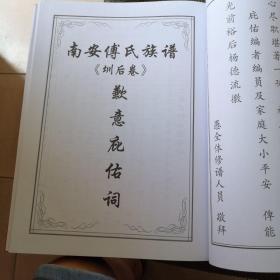 南安傅氏族谱
《圳后卷》
歉意庇佑词
心尽职堪著一
光前裕后杨德流徽
庇佑编者编员及家庭大小平安
俾能
愚全体修谱人员 敬拜